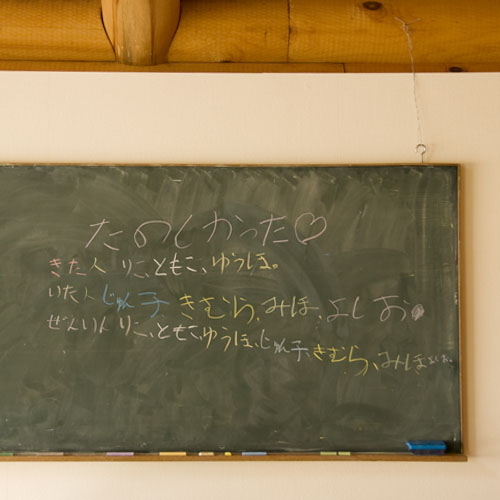 たのしかった♡
きた人 りこ、ともこ、ゆうほ。
いた人 じゅん子 きむら、みほ、よしお。
ぜんいん りこ、ともこ、ゆうほ、じゅん子、きむら、みほ、よしお。